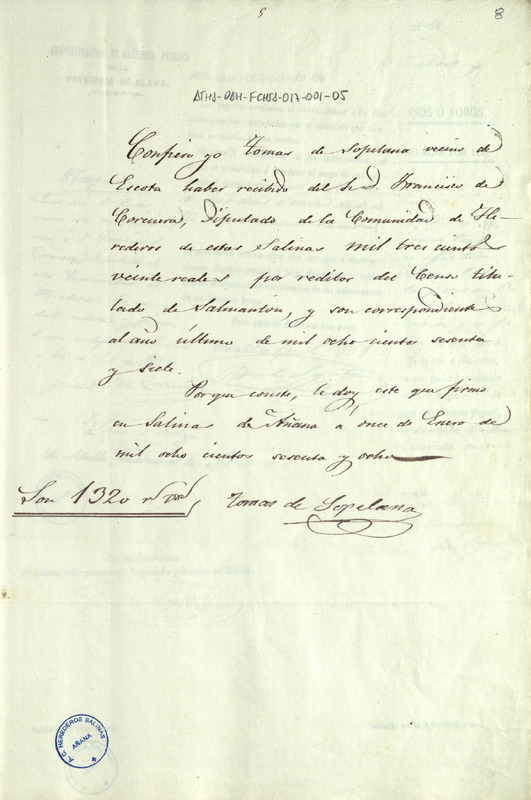 5
8
ATHA-DAH-FCHSA-017-001-05
Confieso yo Tomas de Sopelana vecino de
Escota haber recibido del Sr. D. Francisco de
Corcuera, Diputado de la Comunidad de He-
rederos de estas Salinas mil tres cientos
veinte reales por reditos del Censo titu-
lado de Salmanton, y son correspondientes
al año último de mil ocho cientos sesenta
y siete.
Porque conste, le doy este que firmo
en Salinas de Añana a once de Enero de
mil ocho cientos sesenta y ocho
Son 1320 rs. vn.
Tomas de Sopelana
A. C. HEREDEROS SALINAS
AÑANA